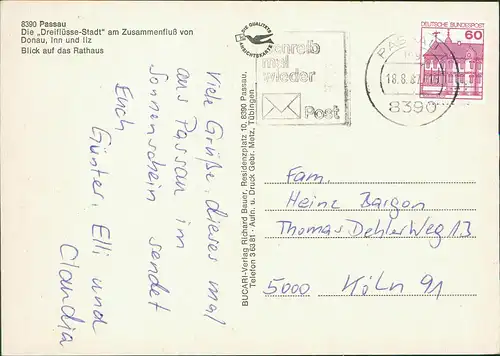 8390 Passau
Die „Dreiflüsse-Stadt" am Zusammenfluß von
Donau, Inn und Ilz
Blick auf das Rathaus
Viele Grüße, dieses mal
aus Passau im
Sonnenschein sendet
Euch
Günter, Elli und
Claudia
BUCARI-Verlag Richard Bauer, Residenzplatz 10, 8390 Passau,
Telefon 36381 - Aufn. u. Druck Gebr. Metz, Tübingen
mal
wieder
Post
PASSAU
8390
DEUTSCHE BUNDESPOST
60
Fam.
Heinz Bargon
Thomas Dehler Weg 13
5000 Köln 91